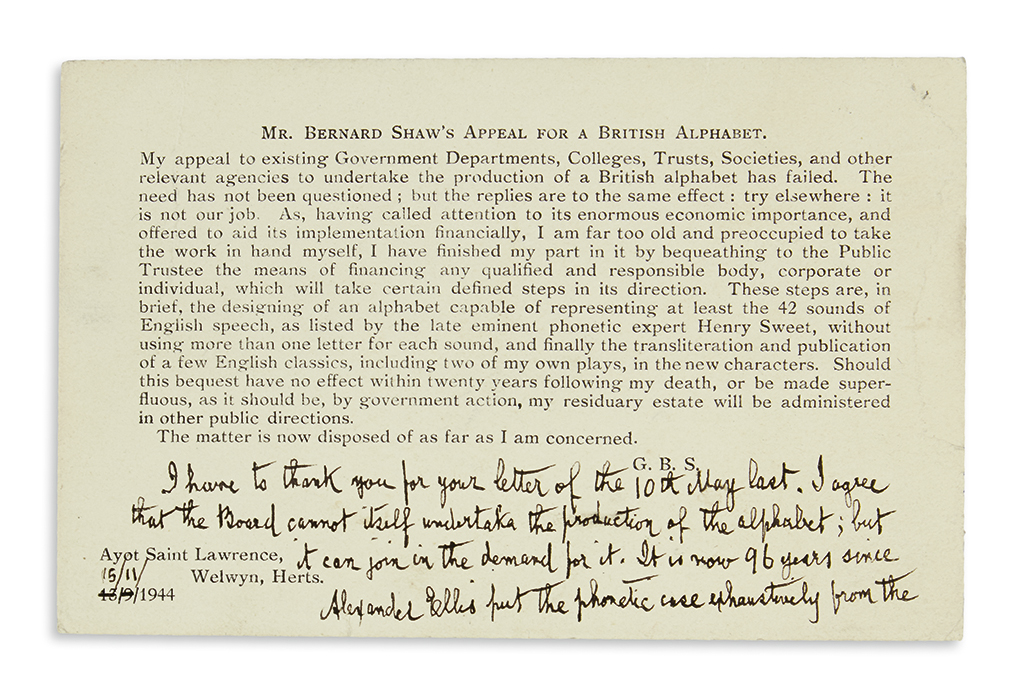 MR. BERNARD SHAW'S APPEAL FOR A BRITISH ALPHABET.
My appeal to existing Government Departments, Colleges, Trusts, Societies, and other
relevant agencies to undertake the production of a British alphabet has failed. The
need has not been questioned ; but the replies are to the same effect : try elsewhere : it
is not our job. As, having called attention to its enormous economic importance, and
offered to aid its implementation financially, I am far too old and preoccupied to take
the work in hand myself, I have finished my part in it by bequeathing to the Public
Trustee the means of financing any qualified and responsible body, corporate or
individual, which will take certain defined steps in its direction. These steps are, in
brief, the designing of an alphabet capable of representing at least the 42 sounds of
English speech, as listed by the late eminent phonetic expert Henry Sweet, without
using more than one letter for each sound, and finally the transliteration and publication
of a few English classics, including two of my own plays, in the new characters. Should
this bequest have no effect within twenty years following my death, or be made super-
fluous, as it should be, by government action, my residuary estate will be administered
in other public directions.
The matter is now disposed of as far as I am concerned.
G. B. S.
I have to thank you for your letter of the 10th May last. I agree
that the Board cannot itself undertake the production of the alphabet ; but
it can join in the demand for it. It is now 96 years since
Alexander Ellis put the phonetic case exhaustively from the
Ayot Saint Lawrence,
Welwyn, Herts.
15/11/
13/9/1944